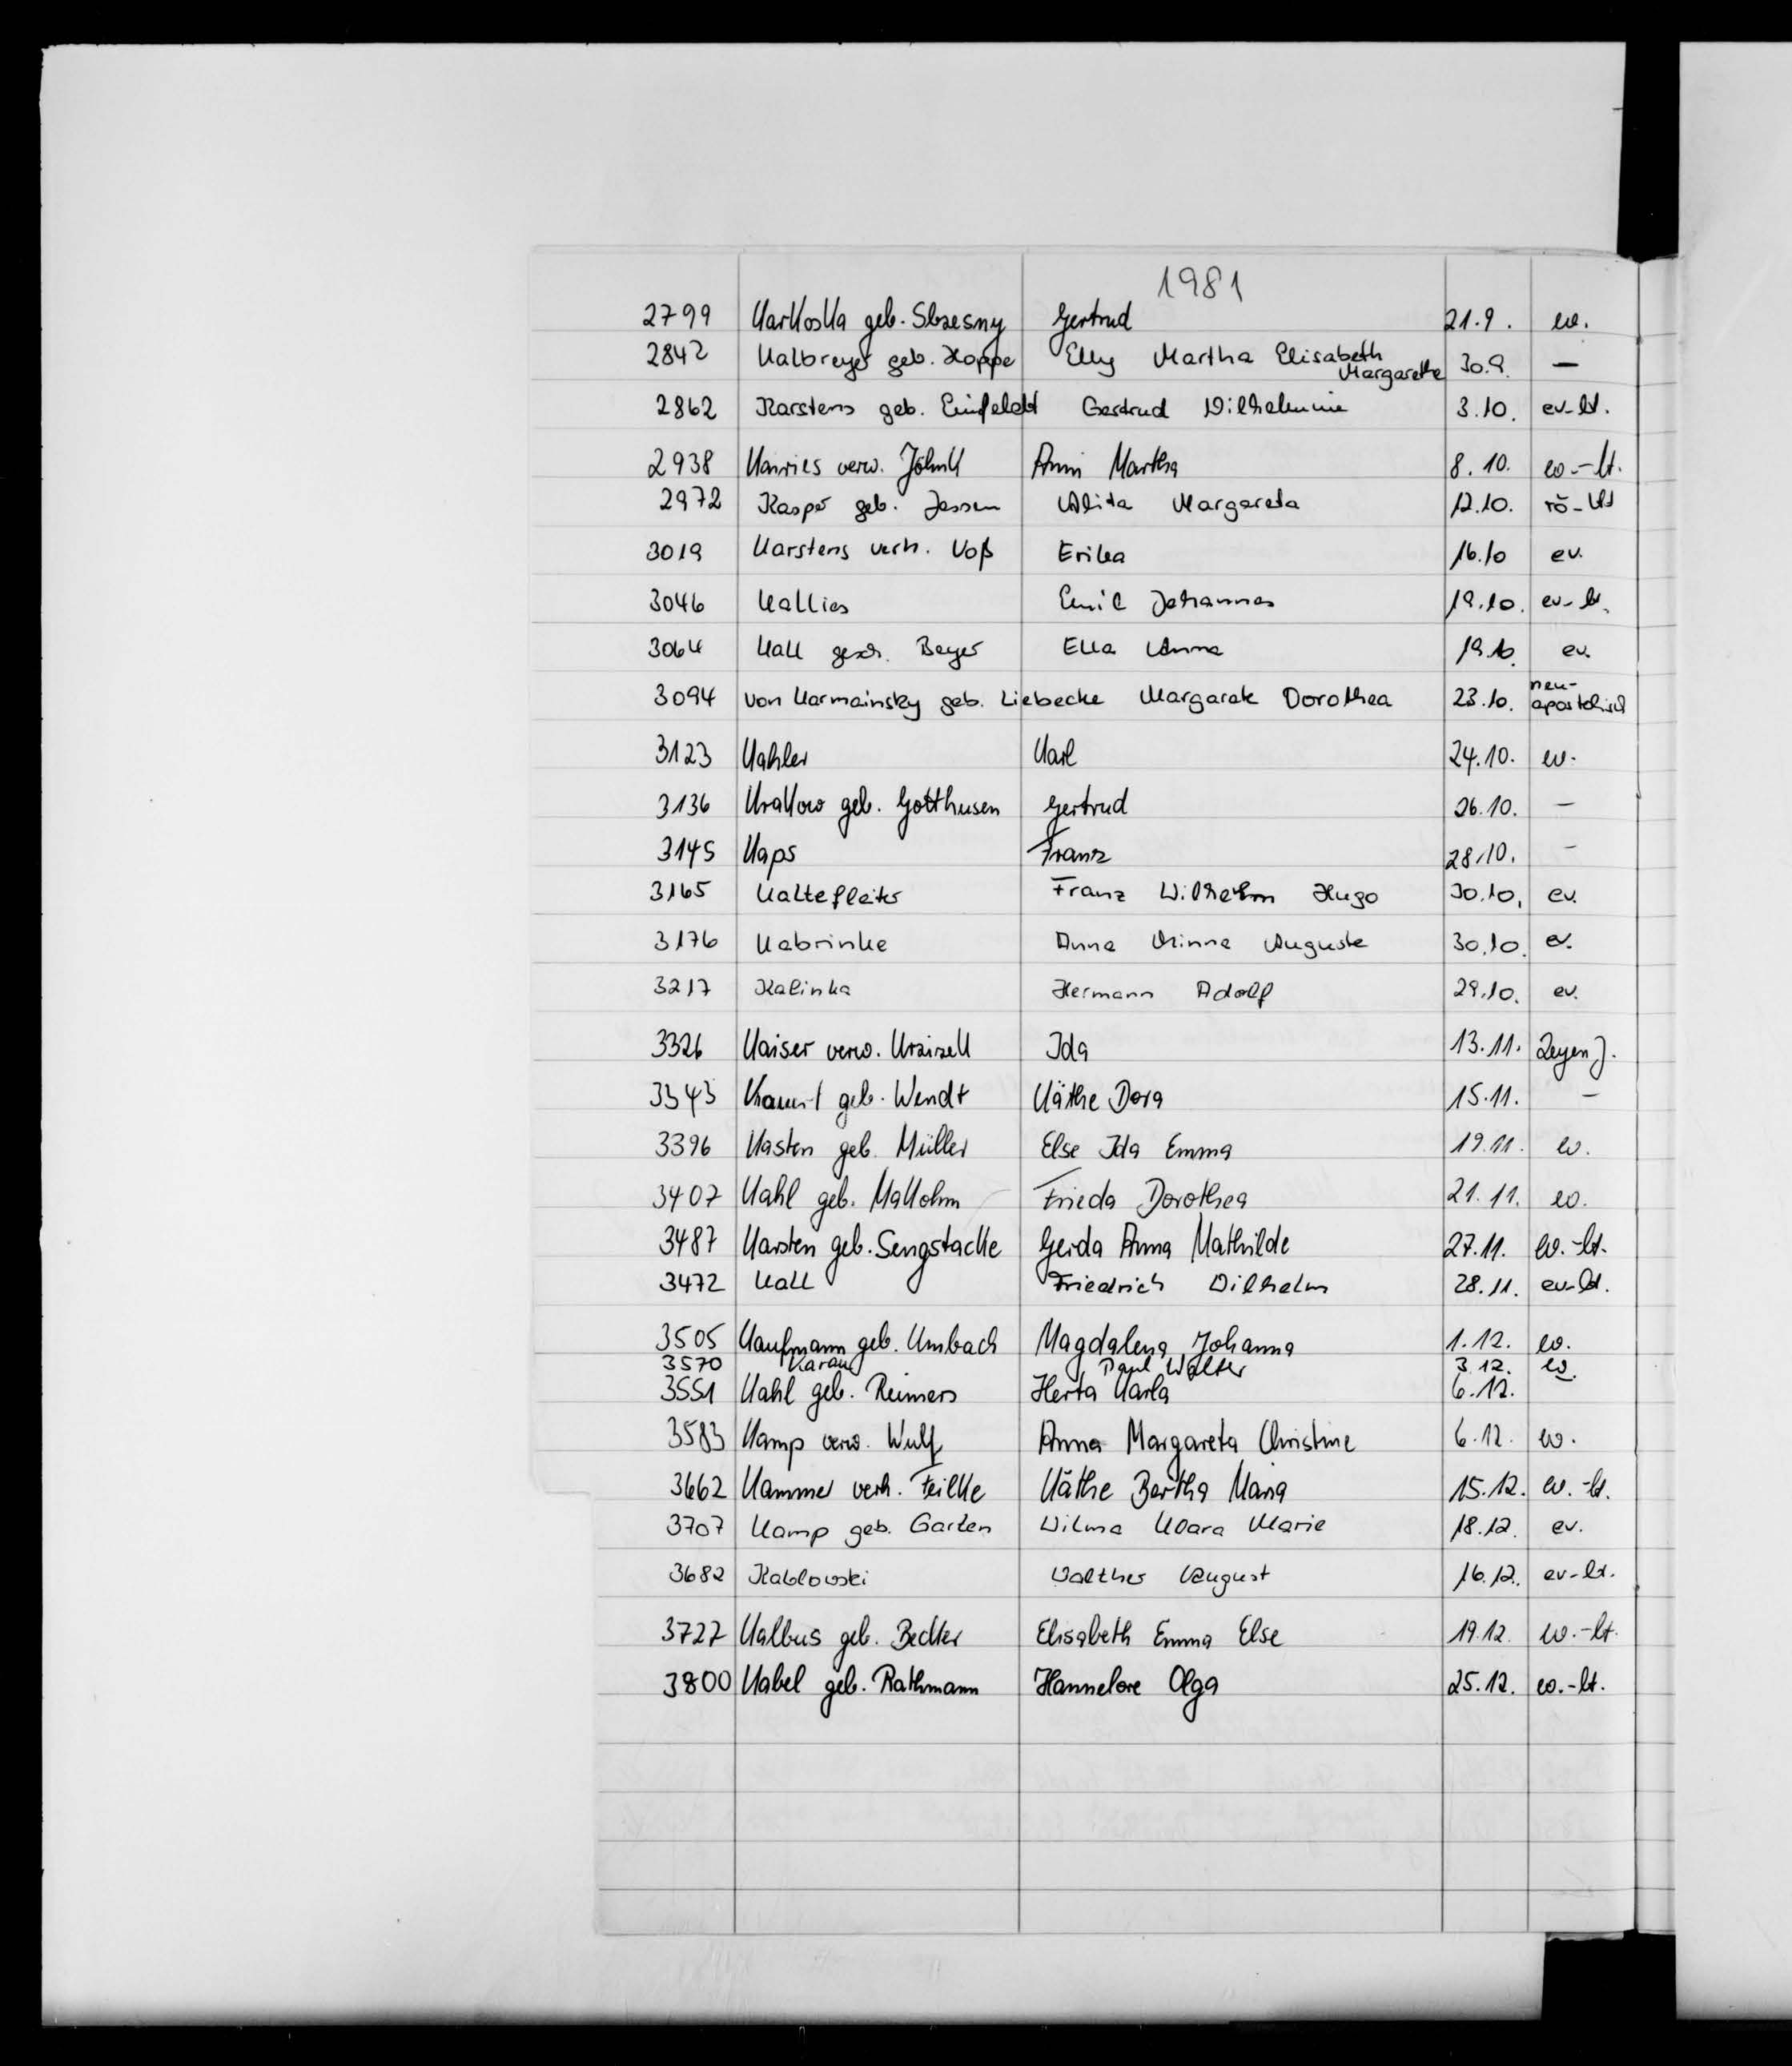 1981
2799 Karkoska geb. Sbzesny Gertrud 21.9. ev.
2842 Kalbreyer geb. Hoppe Elly Martha Elisabeth Margarethe 30.9. —
2862 Karstens geb. Einfeldt Gertrud Wilhelmine 3.10. ev-lt.
2938 Kanries verw. Jöhnk Anni Martha 8.10. ev.-lt.
2972 Kasper geb. Jessen Alita Margareta 12.10. rö-kt
3019 Karstens verh. Voß Erika 16.10 ev.
3046 Kallies Emil Johannes 19.10. ev-lt.
3064 Kall gesch. Beyer Ella Anna 19.10. ev.
3094 von Karmainsky geb. Liebecke Margarete Dorothea 23.10. neu-apostolisch
3123 Kahler Karl 24.10. ev.
3136 Krakow geb. Gotthusen Gertrud 26.10. —
3145 Kaps Franz 28.10. -
3165 Kaltefleiter Franz Wilhelm Hugo 30.10. ev.
3176 Kabrinke Anna Minna Auguste 30.10. ev.
3217 Kalinka Hermann Adolf 29.10. ev.
3326 Kaiser verw. Kraizell Ida 13.11. Zeugen J.
3343 geb. Wendt Käthe Dora 15.11. -
3396 Kasten geb. Müller Else Ida Emma 19.11. ev.
3407 Kahl geb. Makohm Frieda Dorothea 21.11. ev.
3487 Karsten geb. Sengstacke Gerda Anna Mathilde 27.11. ev.-lt.
3472 Kall Friedrich Wilhelm 28.11. ev-lt.
3505 Kaufmann geb. Umbach Magdalena Johanna 1.12. ev.
3570 Karau Paul Walter 3.12. ev.
3551 Kahl geb. Reimers Herta Karla 6.12.
3583 Kamp verw. Wulf Anna Margareta Christine 6.12. ev.
3662 Kammer verh. Feilke Käthe Bertha Maria 15.12. ev.-lt.
3707 Kamp geb. Garten Wilma Klara Marie 18.12. ev.
3682 Kablowski Walther August 16.12. ev-lt.
3727 Kalbus geb. Becker Elisabeth Emma Else 19.12. ev.-lt.
3800 Kabel geb. Rathmann Hannelore Olga 25.12. ev.-lt.